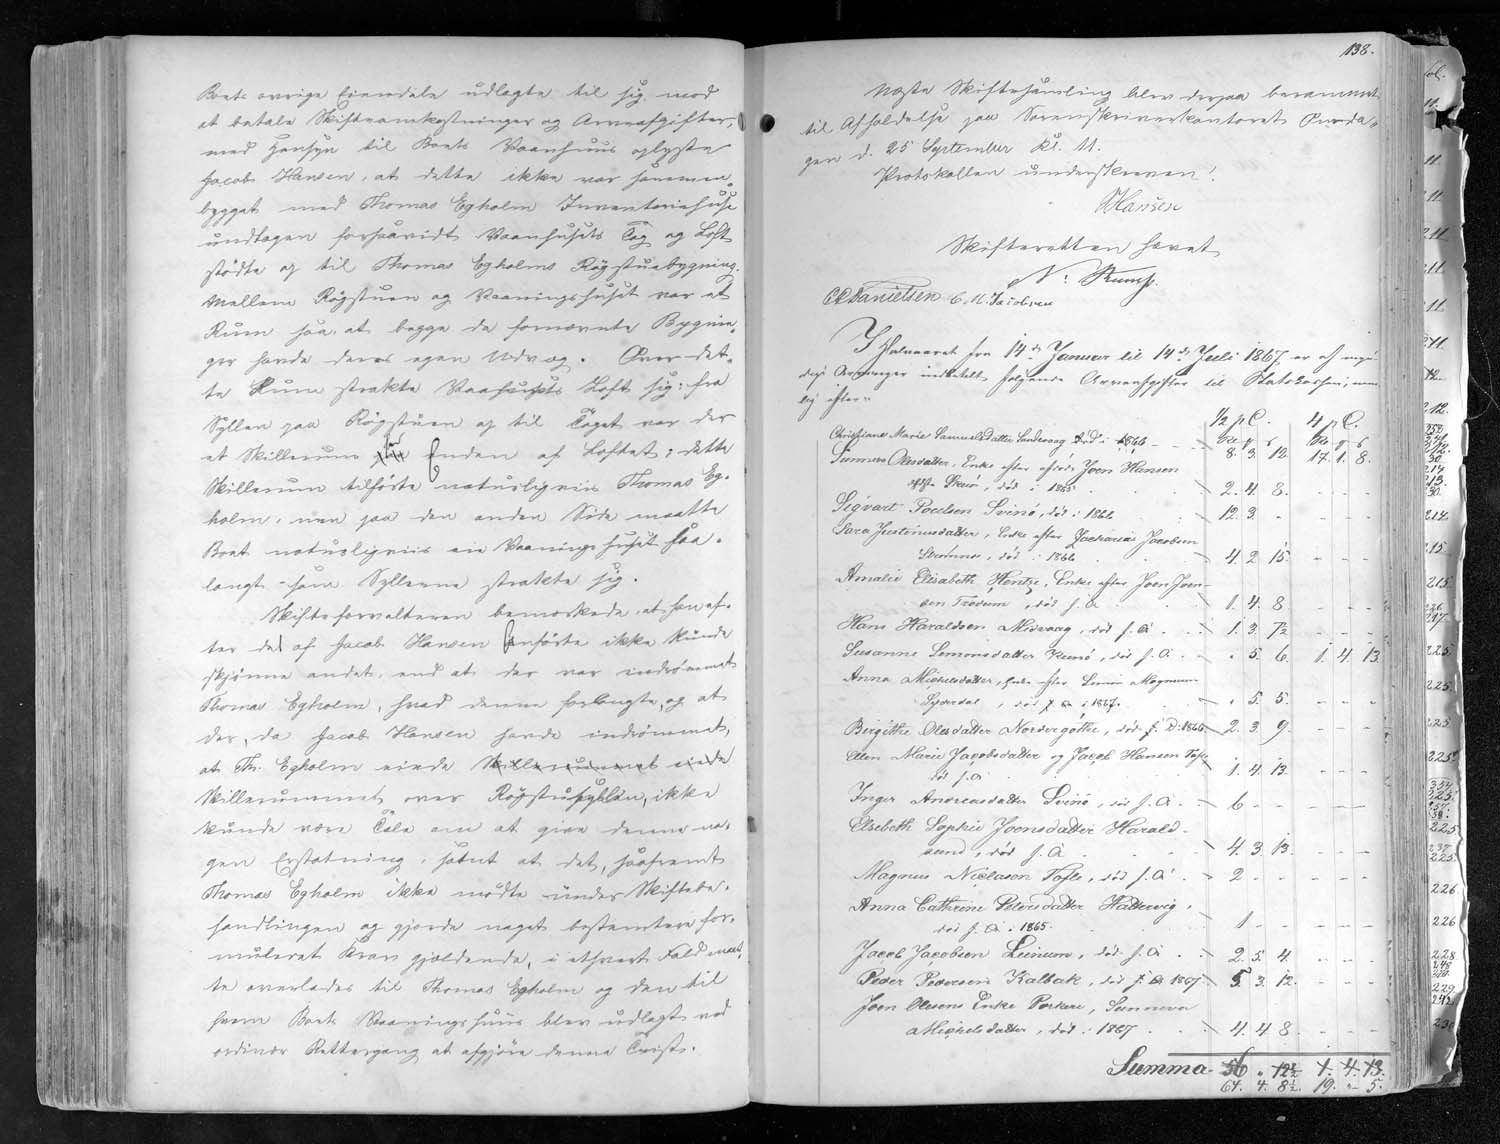 Boets øvrige Eiendele udlagte til sig mod
at betale Skifteomkostninger og Arveafgifter,
med Hensyn til Boets Vaanhuus oplyste
Jacob Hansen, at dette ikke var sammen-
bygget med Thomas Egholm Inventoriehuse
undtagen forsaavidt Vaanhusets Tag og Loft
stødte op til Thomas Egholms Røgstuebygning.
Mellem Røgstuen og Vaaningshuset var et
Rum saa at begge de fornævnte Bygnin-
ger havde deres egen Udvæg. Over det-
te Rum strakte Vaanhusets Loft sig: fra
Syllen paa Røgstuen op til Taget var der
et Skillerum for Enden af Loftet; dette
Skillerum tilhørte naturligviis Thomas Eg-
holm, men paa den anden Side maatte
Boet naturligviis eie Vaaningshuset saa-
langt som Syllerne strakte sig.
Skifteforvalteren bemærkede, at han ef-
ter det af Jacob Hansen anførte ikke kunde
skjønne andet, end at der var indrømmet
Thomas Egholm, hvad denne forlangte, og at
der, da Jacob Hansen havde indrømmet,
at Th. Egholm eiede Skillerummet eiede
Skillerummet over Røgstuesyllen, ikke
kunde være Tale om at give denne no-
gen Erstatning, samt at det, saafremt
Thomas Egholm ikke mødte under Skiftebe-
handlingen og gjorde noget bestemtere for-
muleret Krav gjældende, i ethvert Fald maat-
te overlades til Thomas Egholm og den til
hvem Boets Vaaningshuus blev udlagt ved
ordinær Rettergang at afgjøre denne Tvist.
138.
Næste Skiftesamling blev derpaa berammet
til Afholdelse paa Sorenskriverkontoret Onsda-
gen d. 25 September Kl. 11.
Protokollen underskreven!
Hansen
Skifteretten hævet
C. M. Jacobsen
I Halvaaret fra 14de Januar til 14de Juli 1867 er af
Arvinger indbetalt følgende Arveafgifter til Statskassen, nem-
lig efter:
1/2 pC. 4 pC.
Christiane Marie Samuelsdatter Sandevaag død i 1866 8. 3. 12 17. 1. 8.
Sunneva Olesdatter, Enke efter afdøde Joen Hansen
Skuø, død i 1865 2. 4. 8.
Sigvart Poulsen Svinø, død i 1866 12. 3.
Sara Justinusdatter, Enke efter Zacharias Jacobsen
død i 1866 4. 2. 15.
Amalie Elisabeth Hentze, Enke efter Joen Joen-
sen Trødum, død s. A. 1. 4. 8
Hans Haraldsen Midvaag, død s. A. 1. 3. 7½
Susanne Simonsdatter Kunø, død s. A. 5. 6. 1. 4. 13.
Anna Michelsdatter, Enke efter Simon Magnussen
Syderdal, død i 1867. 5. 5.
Birgithe Olesdatter Nordregøthe, død 1866 2. 3. 9.
Elen Marie Jacobsdatter og Jacob Hansen
død s. A. 1. 4. 13.
Inger Andreasdatter Svinø, død s. A. 6
Elsebeth Sophie Joensdatter Harald-
sund, død s. A. 4. 3. 13.
Magnus Niclasen Tofte, død s. A. 2
Anna Cathrine Petersdatter Hattervig,
død s. A. 1865. 1
Jacob Jacobsen Leinum, død s. A. 2. 5. 4
Peder Pedersen Kalbak, død 1867 5. 3. 12
Joen Olesens Enke Porkere, Sunneva
Michelsdatter, død i 1867 4. 4. 8
Summa 56 12½ 1. 4. 13.
64. 4. 8½. 19. " 5.